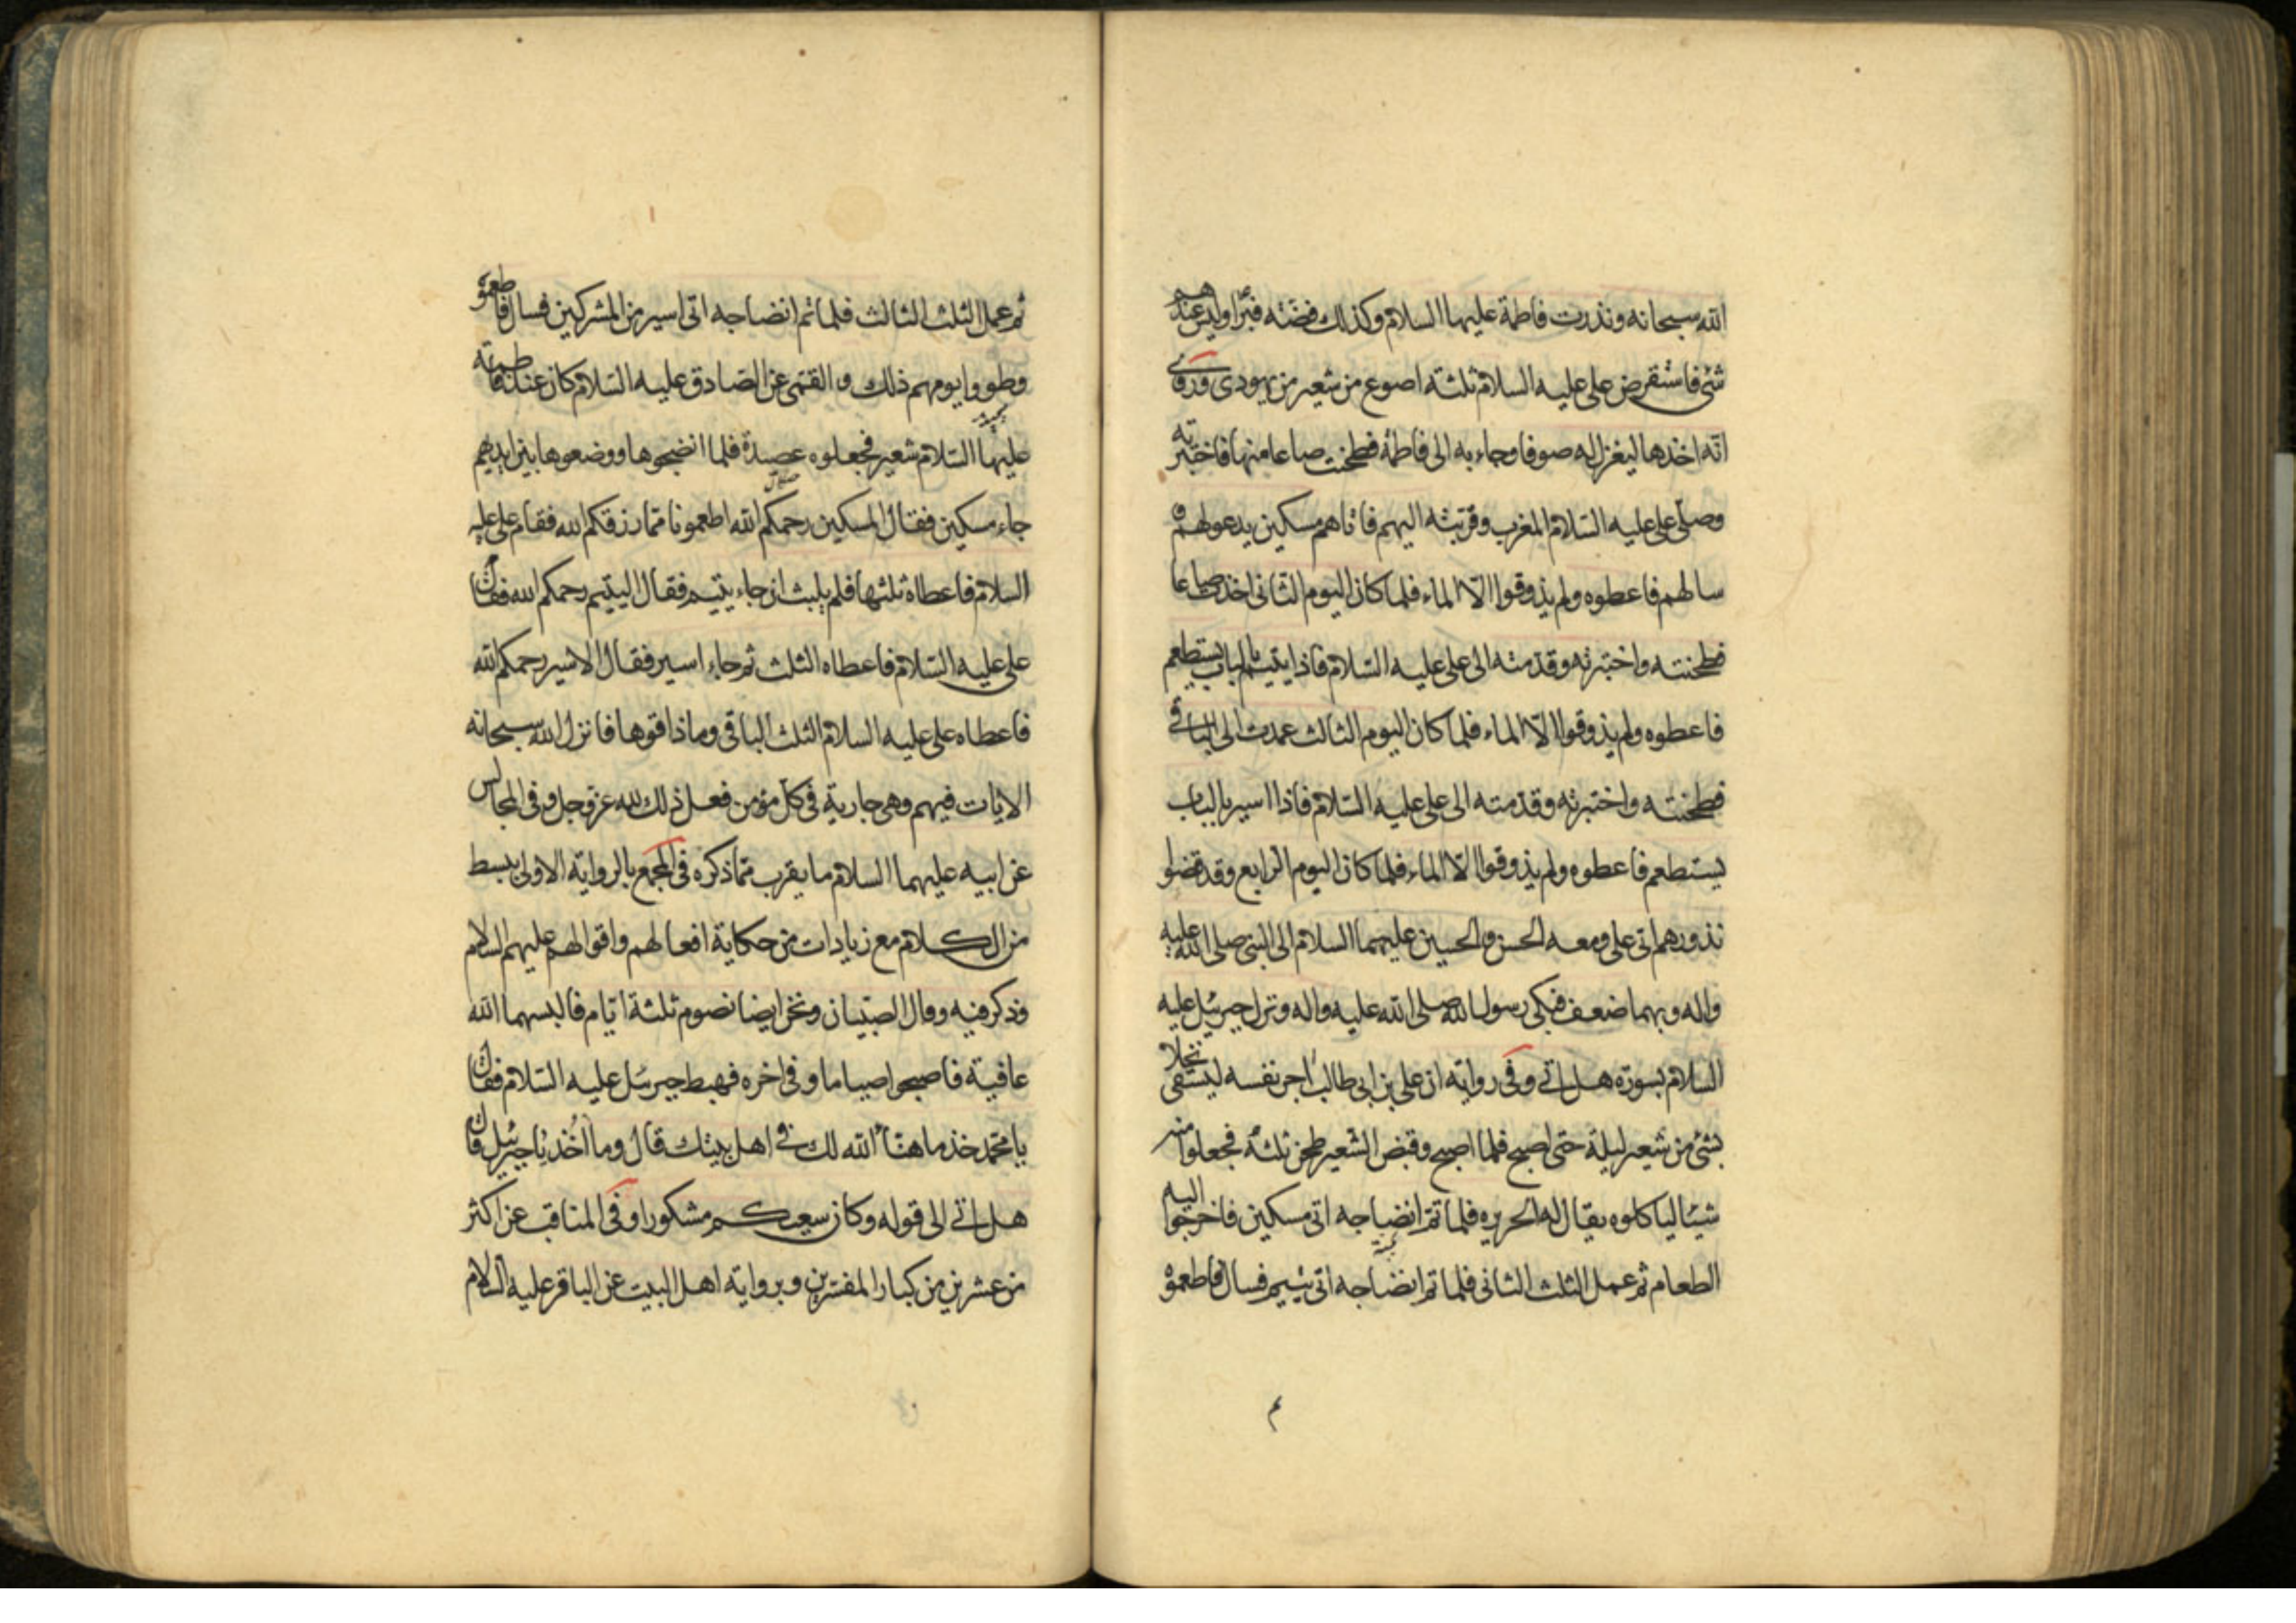 الله سبحانه ونذرت فاطمة عليها السلام وكذلك فضّته فبرًا وليس عندهم
شئ فاستقرض على عليه السلام ثلثة اصوع من شعير من يهودى وروى
انّه اخذها ليغزل له صوفا وجاء به الى فاطمة فطحنت صاعا منها فاختبزته
وصلّى على عليه السّلام المغرب وقرّبته اليهم فاتاهم مسكين يدعو لهم و
سالهم فاعطوه ولم يذوقوا الّا الماء فلمّا كان اليوم الثّانى اخذت صاعا
فطحنته واختبزته وقدّمته الى على عليه السّلام فاذا يتيم بالباب يستطعم
فاعطوه ولم يذوقوا الّا الماء فلمّا كان اليوم الثالث عمدت الى الباقى
فطحنته واختبزته وقدّمته الى على عليه السّلام فاذا اسير بالباب
يستطعم فاعطوه ولم يذوقوا الّا الماء فلمّا كان اليوم الرّابع وقد قضوا
نذورهم اتى على ومعه الحسن والحسين عليهما السلام الى النبى صلى الله عليه
واله وبهما ضعف فبكى رسول الله صلى الله عليه واله ونزل جبرئيل عليه
السلام بسورة هل اتى وفى رواية ان على بن ابى طالب اجر نفسه ليستقى نخلا
بشئ من شعير ليلة حتى اصبح فلمّا اصبح وقبض الشّعير طحن ثلثه فجعلوا منه
شيئا لياكلوه يقال له الحريره فلمّا تمّ انضاجه اتى مسكين فاخرجوا اليه
الطعام ثم عمل الثلث الثانى فلمّا تم انضاجه اتى يتيم فسال فاطعموه
ثم عمل الثلث الثالث فلمّا تم انضاجه اتى اسير من المشركين فسال فاطعموه
وطووا يومهم ذلك و القمّى عن الصّادق عليه السّلام كان عند فاطمة
عليها السّلام شعير فجعلوه عصيدة فلمّا انضجوها ووضعوها بين ايديهم
جاء مسكين فقال المسكين رحمكم الله اطعمونا ممّا رزقكم الله فقام على عليه
السلام فاعطاه ثلثها فلم يلبث ان جاء يتيم فقال اليتيم رحمكم الله فقام
على عليه السّلام فاعطاه الثلث ثم جاء اسير فقال الاسير رحمكم الله
فاعطاه على عليه السلام الثلث الباقى وما ذاقوها فانزل الله سبحانه
الايات فيهم وهى جارية فى كلّ مؤمن فعل ذلك لله عز وجل وفى المجالس
عن ابيه عليهما السلام ما يقرب ممّا ذكره فى المجمع بالرواية الاولى ببسط
من الكلام مع زيادات من حكاية افعالهم واقوالهم عليهم السلام
وذكر فيه وقال الصبيان ونحن ايضا نصوم ثلثة ايّام فالبسهما الله
عافية فاصبحوا صياما وفى اخره فهبط جبرئيل عليه السّلام فقال
يا محمّد خذ ما هنّأ الله لك فى اهل بيتك قال وما اخذ يا جبرئيل قال
هل اتى الى قوله وكان سعيكم مشكورا وفى المناقب عن اكثر
من عشرين من كبار المفسّرين وبرواية اهل البيت عن الباقر عليه السّلام